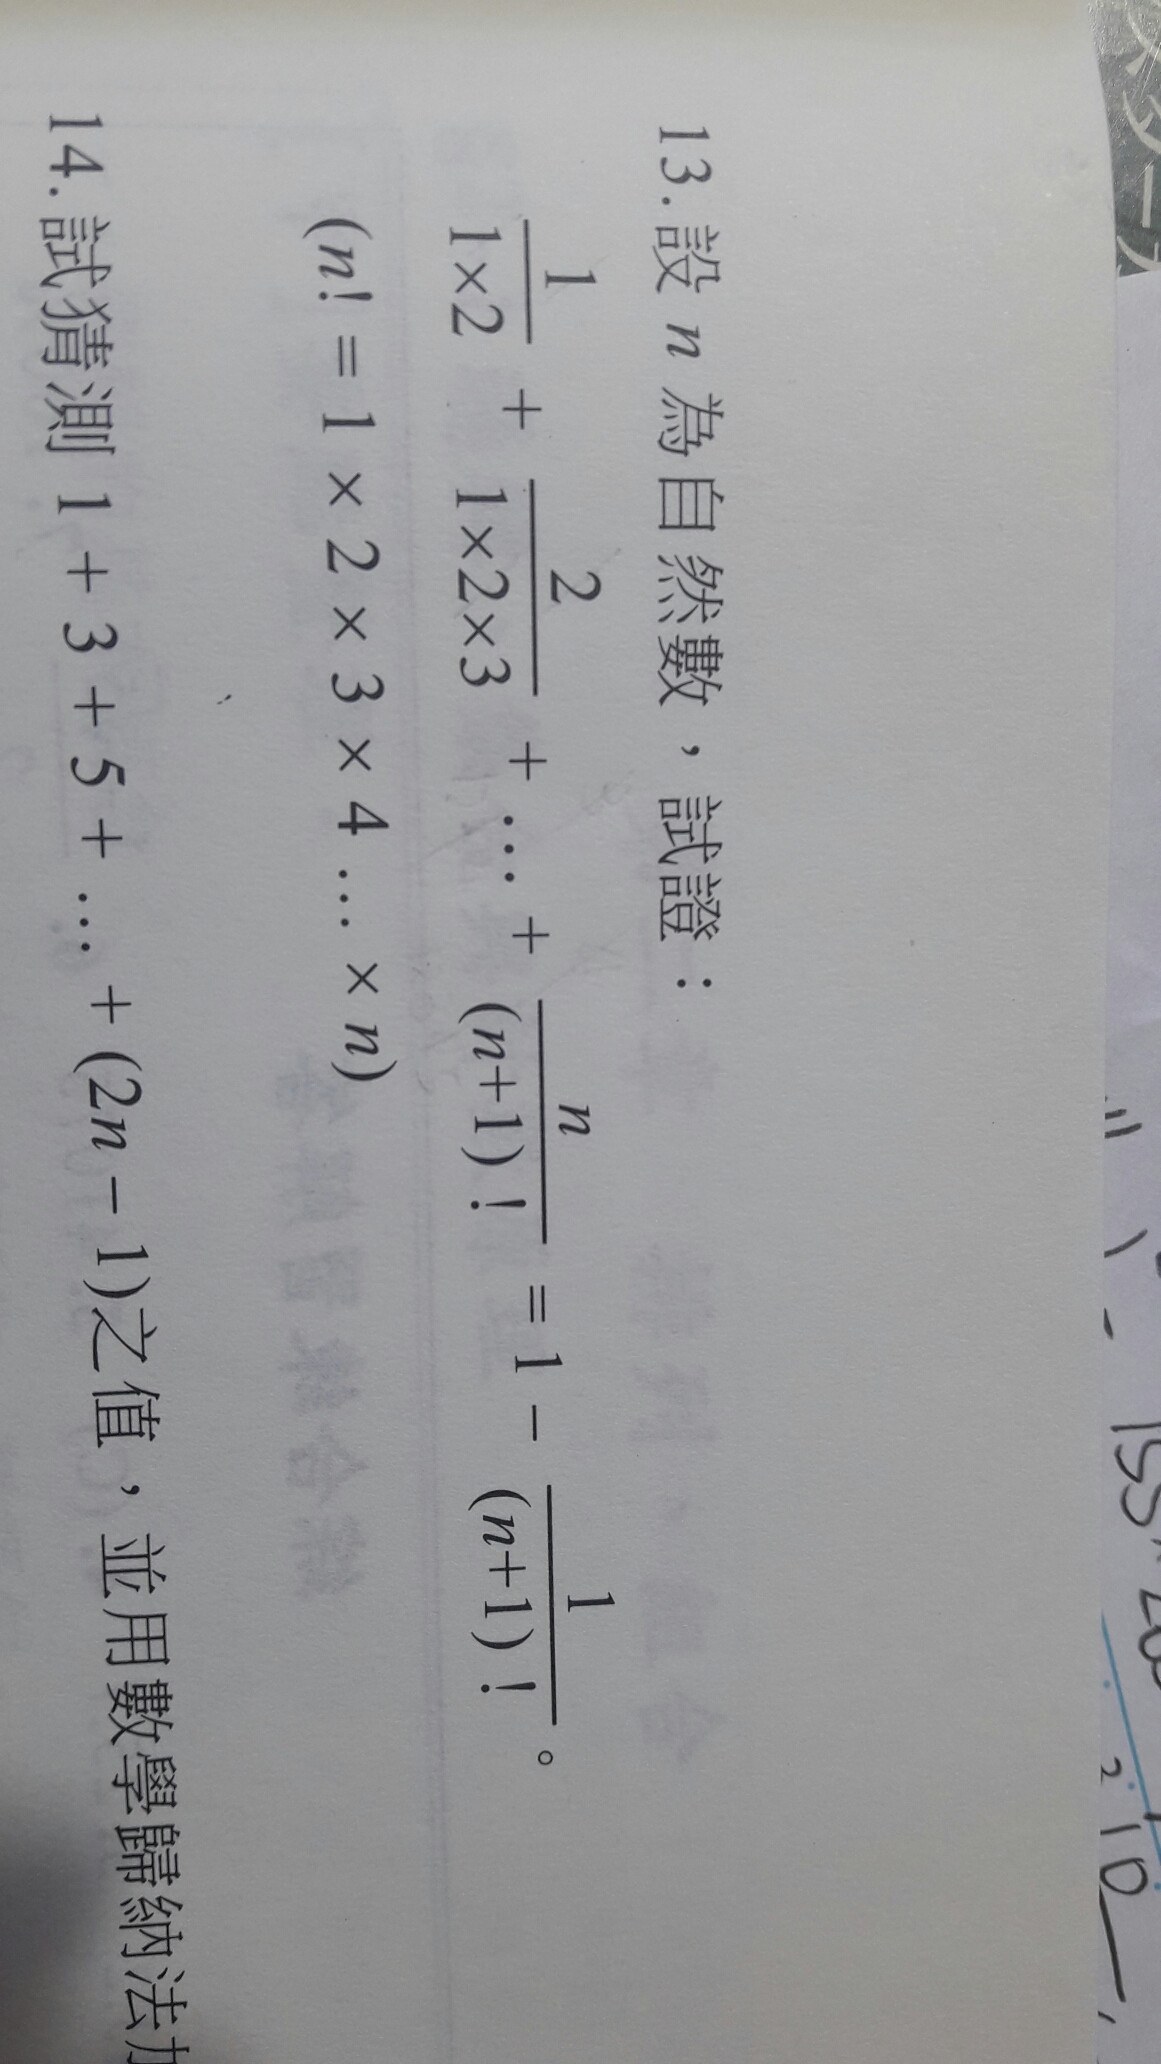 13. 設 n 為自然數，試證：
1/1×2 + 2/1×2×3 + … + n/(n+1)! = 1 − 1/(n+1)! 。
(n! = 1 × 2 × 3 × 4 … × n)
14. 試猜測 1 + 3 + 5 + … + (2n − 1)之值，並用數學歸納法